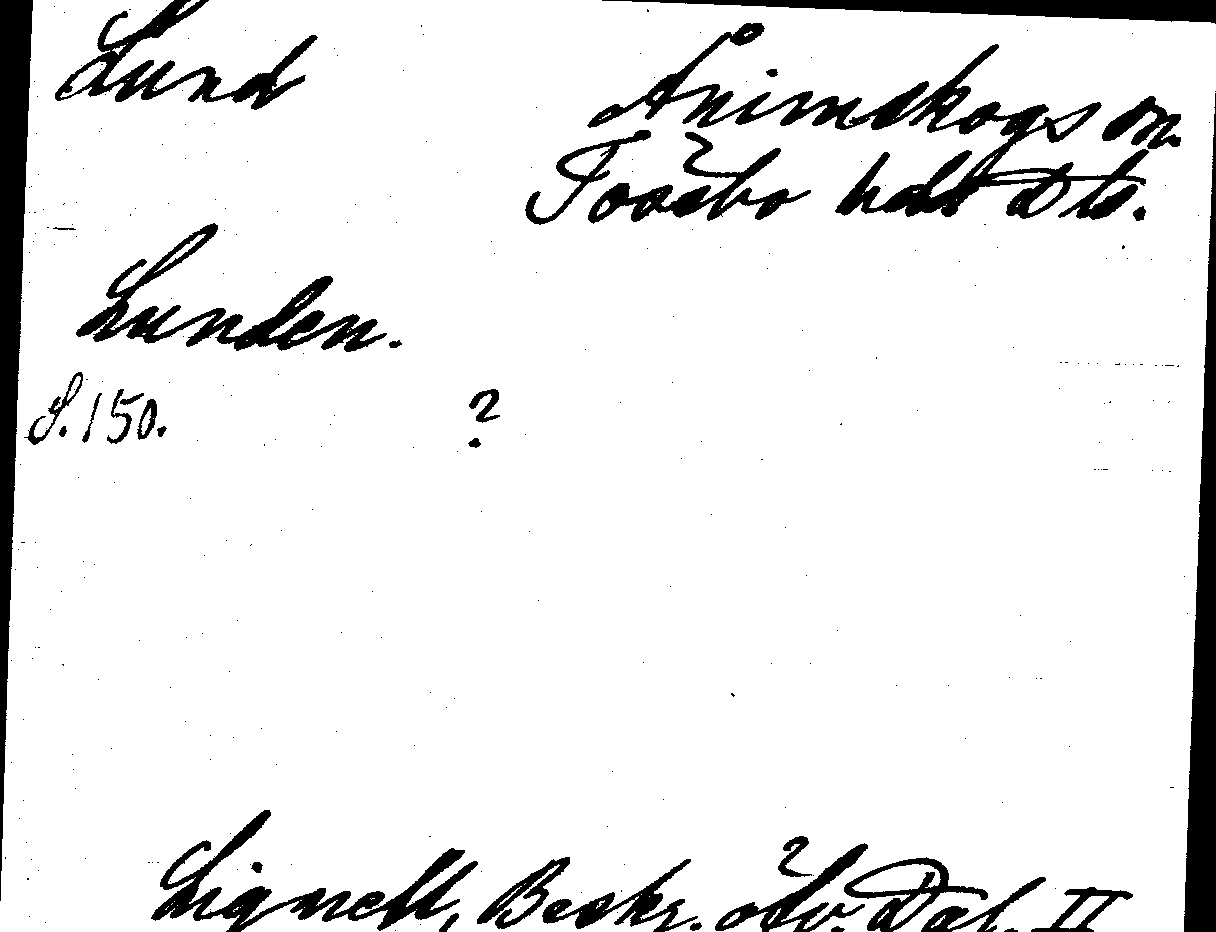 Lund
Ånimskogs sn.
Tössbo hds Dls.
Lunden.
S. 150.
?
Lignell, Beskr. öfv. Dal. II